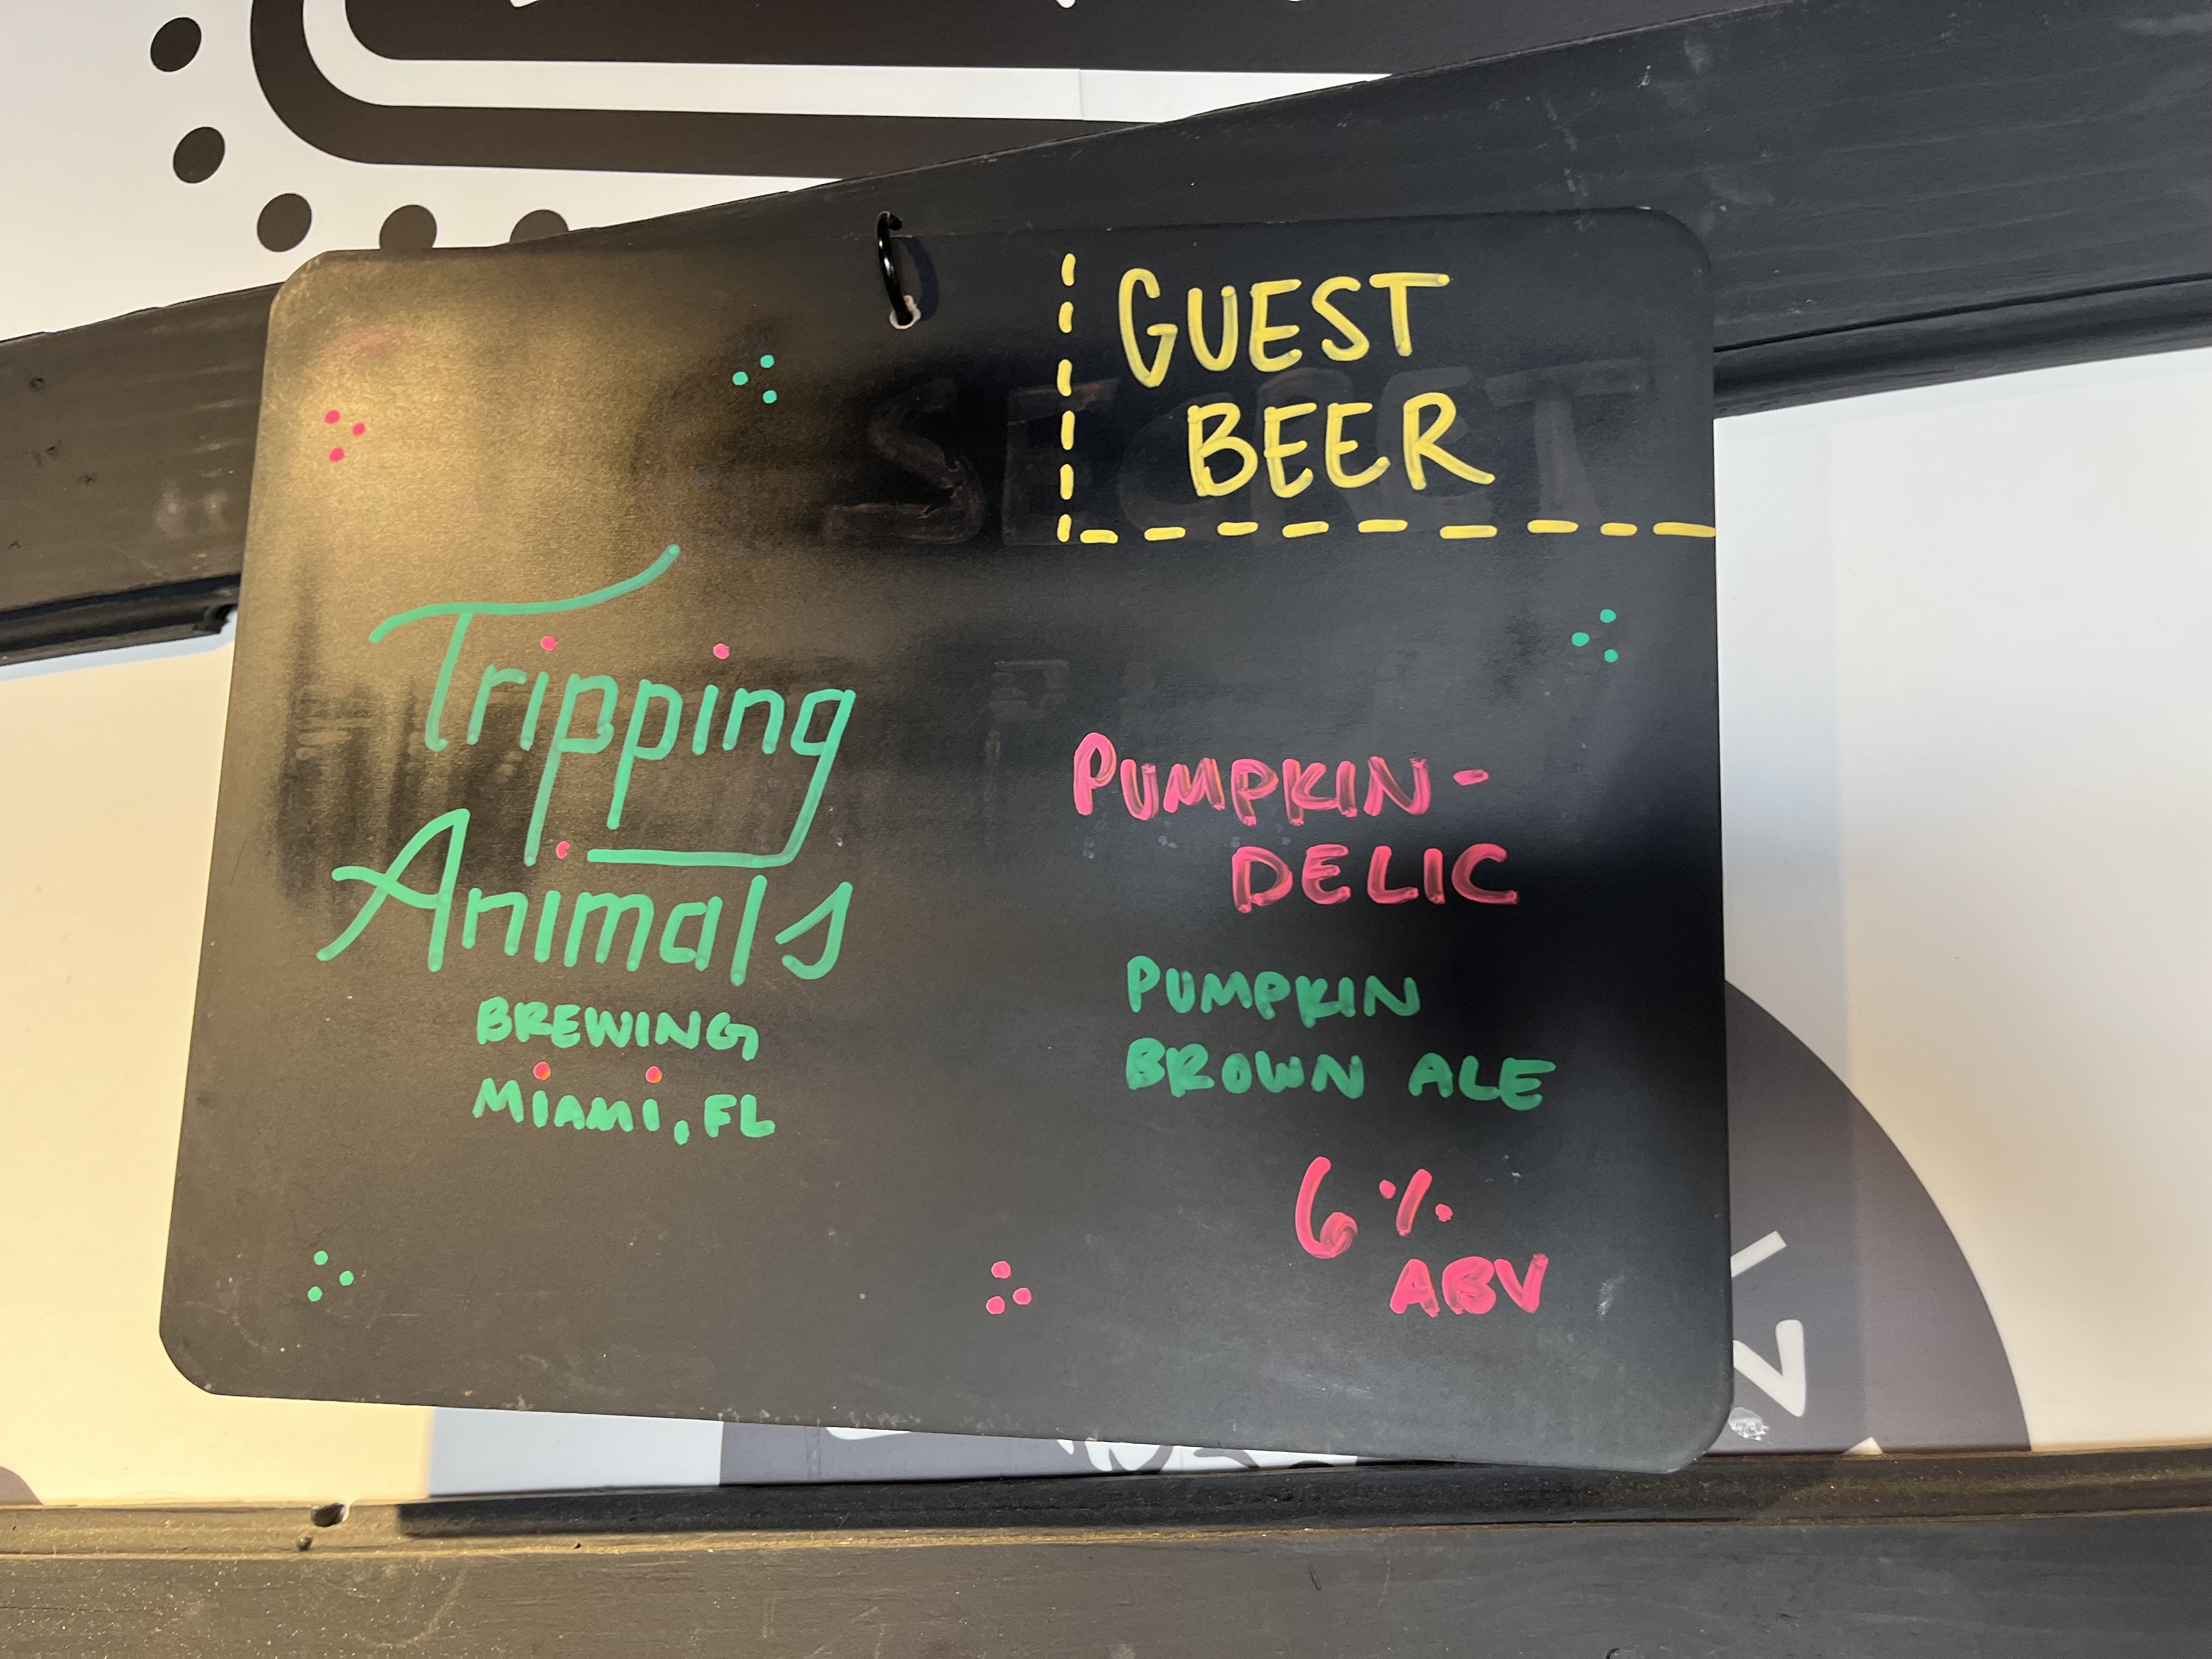 GUEST
BEER
SECRET
Tripping
Animals
BREWING
MIAMI, FL
PUMPKIN-
DELIC
PUMPKIN
BROWN ALE
6%
ABV